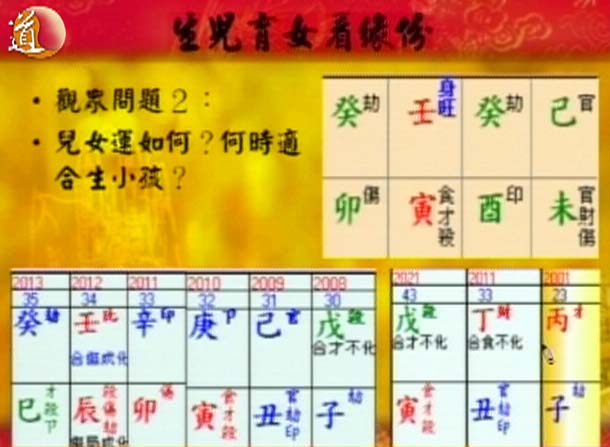 道
生兒育女看緣份
• 觀眾問題2：
• 兒女運如何？何時適
合生小孩？
癸 劫 壬 身旺 癸 劫 己 官
卯 傷 寅 食才殺 酉 印 未 官財傷
2013 2012 2011 2010 2009 2008
35 34 33 32 31 30
癸 劫 壬 辛 印 庚 卩 己 官 戊 殺
合傷成化 合才不化
巳 才殺卩 辰 殺傷劫 卯 傷 寅 食才殺 丑 官劫印 子 劫
2021 2011 2001
43 33 23
戊 殺 丁 財 丙 才
合才不化 合食不化
寅 食才殺 丑 官劫印 子 劫